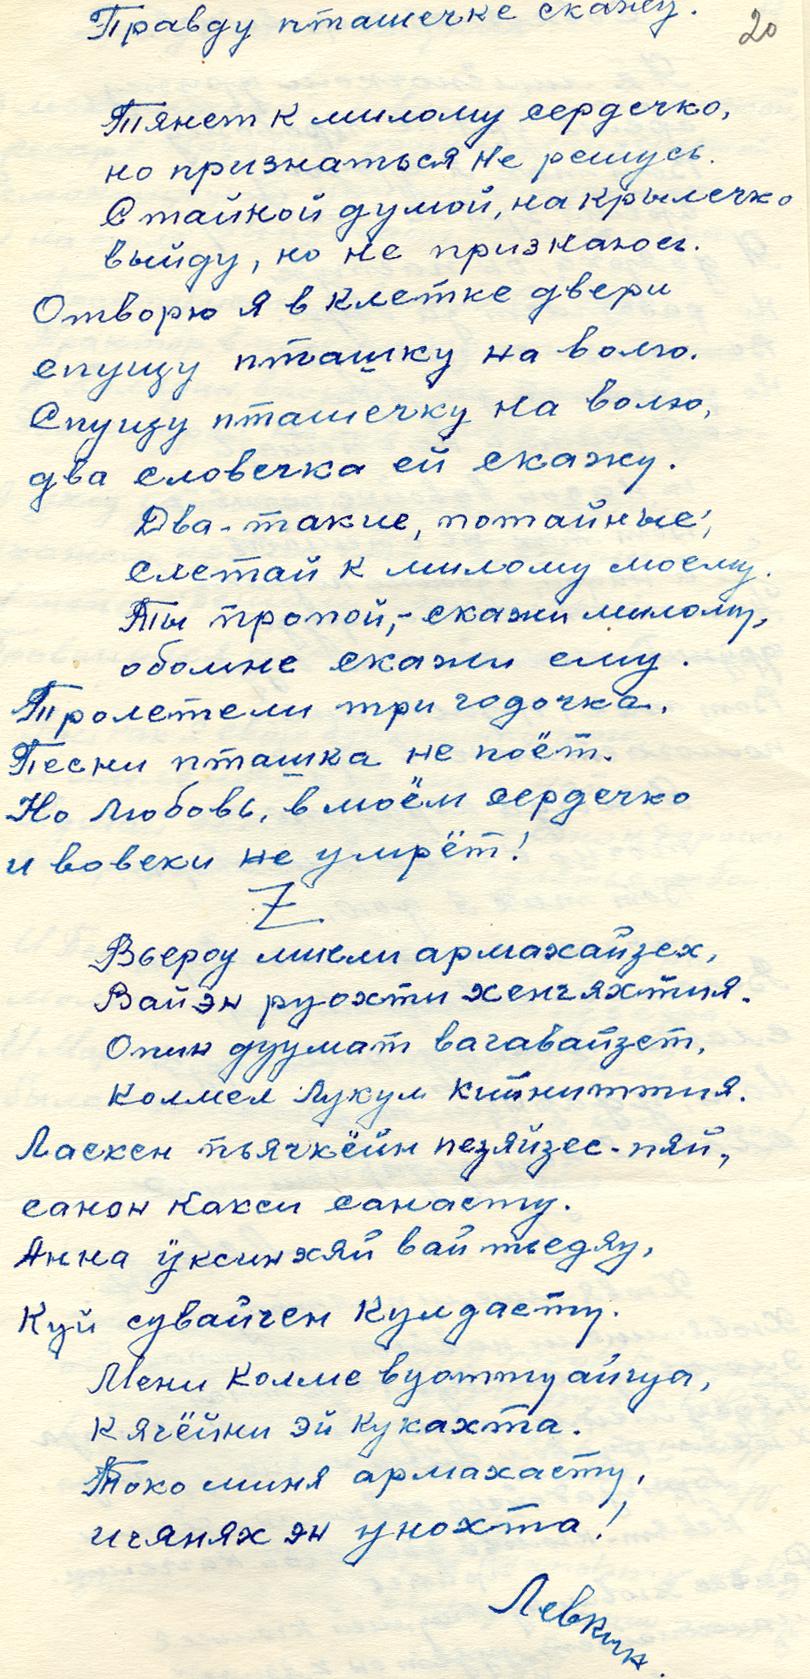 Правду пташечке скажу.
20
Тянет к милому сердечко,
но признаться не решусь.
С тайной думой, на крылечко
выйду, но не признаюсь.
Отворю я в клетке двери
спущу пташку на волю.
Спущу пташечку на волю,
два словечка ей скажу.
Два-такие, потайные,
слетай к милому моему.
Ты пропой,- скажи милому,
обомне скажи ему.
Пролетели три годочка.
Песни пташка не поёт.
Но любовь, в моём сердечко
и вовеки не умрёт!
Z
Вьероу миели армахайзех,
Вайэн руохти хенгяхтия.
Опин дуумат вагавайзет,
Колмел лукул кийниттия.
Ласксн пьячкёйн пезяйзес-пяй,
санон какси санасту.
Анна ӱксинхяй вай тьедяу,
Куй сувайчен кулдасту.
Мени колме вуоттуайгуа,
Кячёйни эй кукахта.
Токо миня армахасту,
игянях эн унохта!
Левкин.